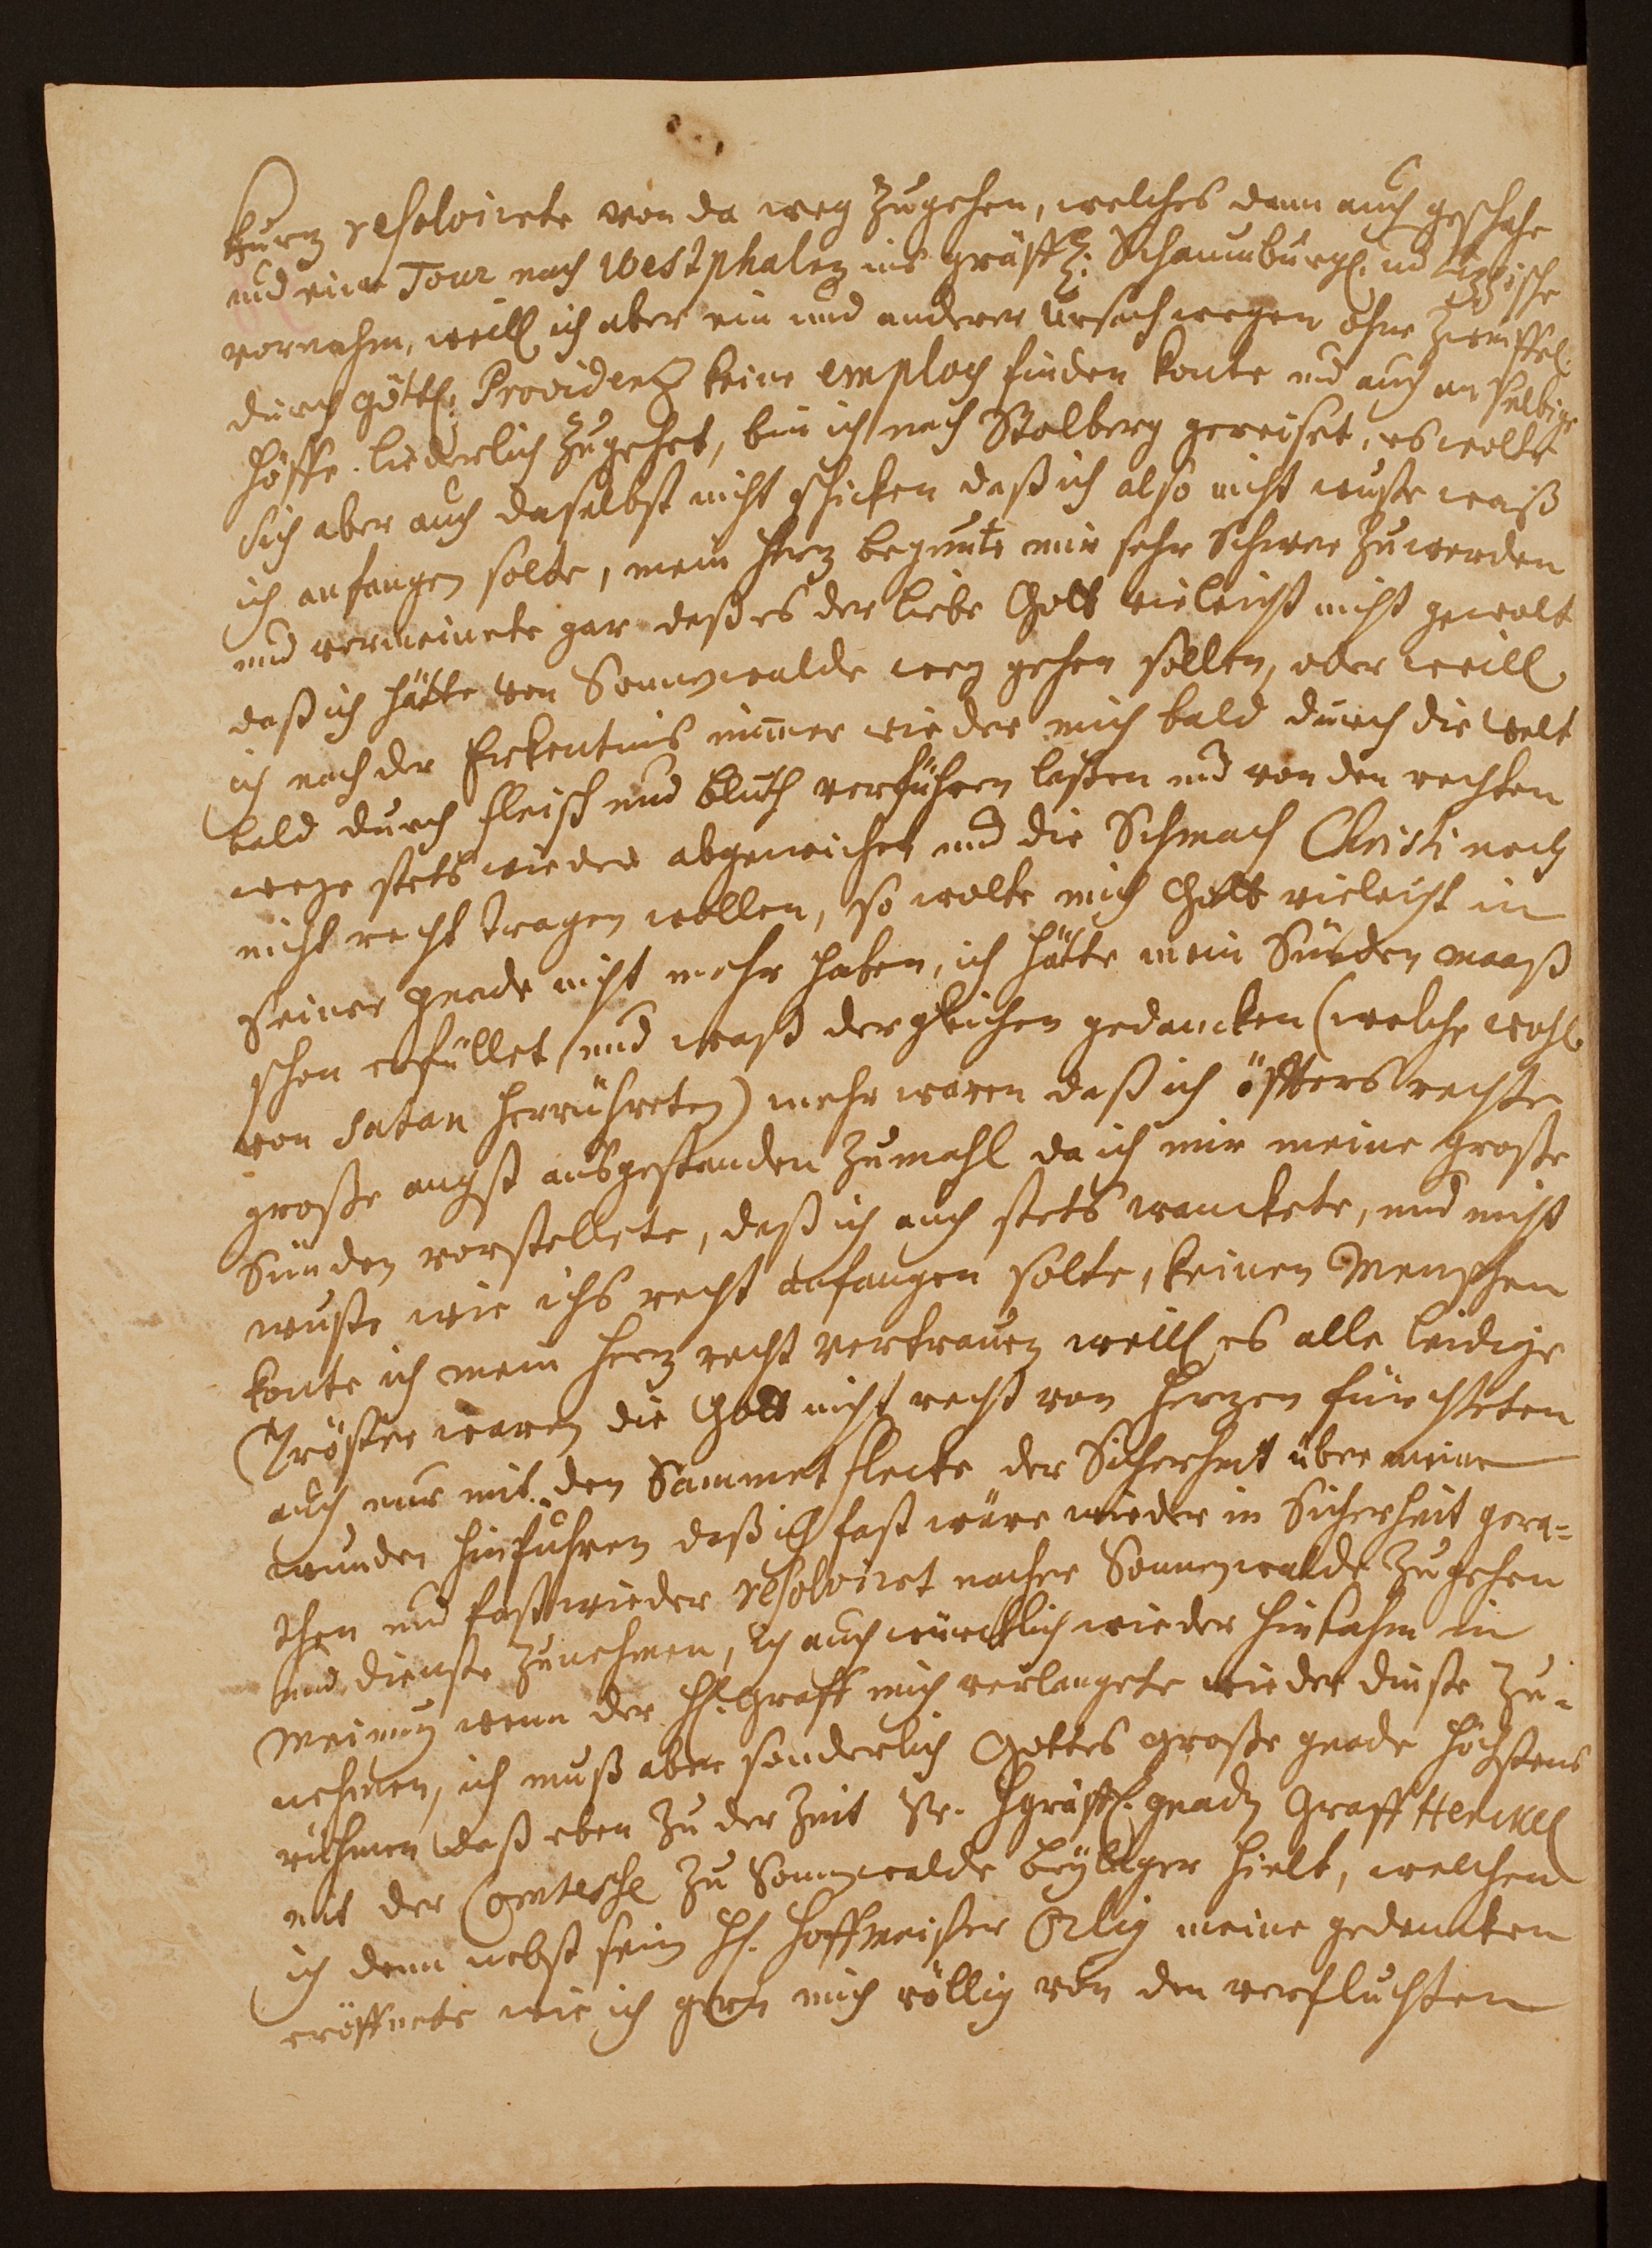 kurz resolvirete von da weg zugehen, welches dann auch geschahe
und eine Tour nach Westphalen ins gräffl: Schaumburgl. und Lippische
vornahm, weill ich aber ein und anderer ursach wegen ohne zweiffel
durch göttl: Providenz keine employ finden konte und auch an selbige
höffe liederlich zugehet, bin ich nach Stolberg gereiset, es wolte
sich aber auch daselbst nicht schicken daß ich also nicht wuste waß
ich anfangen solte, mein Herz begunte mir sehr schwer zuwerden
und vermeinete gar daß es der liebe Gott vieleicht nicht gewolt
daß ich hätte von Sonnewalde weg gehen sollen, oder weill
ich nach der Erkentnis immer wieder mich bald durch die welt
bald durch fleisch und bluth verführen laßen und von den rechten
wege stets wieder abgewichen und die Schmach Christi noch
nicht recht tragen wollen, so wolte mich Gott vieleicht in
seiner gnade nicht mehr haben, ich hätte mein Sünden maaß
schon erfüllet, und waß dergleichen gedancken (welche wohl
von Satan herrühreten) mehr waren daß ich öffters rechte
große angst ausgestanden zumahl da ich mir meine große
Sünden vorstellete, daß ich auch stets wanckete, und nicht
wuste wie ichs recht anfangen solte, keinen Menschen
konte ich mein Herz recht vertrauen weill es alle leidige
Tröster waren die Gott nicht recht von Herzen fürchteten
auch nur mit den Sammet flecke der Sicherheit über meine
wunden hinfuhren daß ich fast wäre wieder in Sicherheit gera=
then und fast wieder resolviret nacher Sonnewalde zugehen
und dienste zunehmen, ich auch würcklich wieder hinkahm in
Meinung wenn der H. Graff mich verlangete wieder dinste zu=
nehmen, ich muß aber sonderlich Gottes große gnade höchstens
rühmen daß eben zu der Zeit Sr. Hgräffl. gnaden Graff Henckel
mit der Comtesse zu Sonnewalde beylager hielt, welchem
ich denn nebst sein H. Hoffmeister meine gedancken
eröffnete wie ich gern mich völlig von den verfluchten